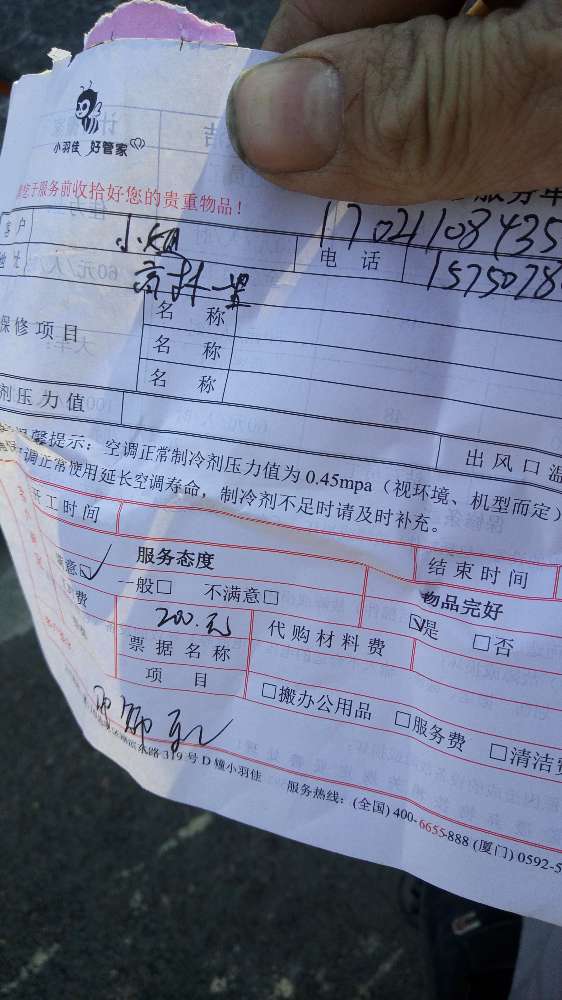 小羽佳 好管家
您于服务前收拾好您的贵重物品!
服务单
客户 小姐 电话 17021108435
地址 1575078
保修项目 名称
名称
名称
剂压力值 出风口温
馨提示：空调正常制冷剂压力值为 0.45mpa（视环境、机型而定）
调正常使用延长空调寿命，制冷剂不足时请及时补充。
开工时间 结束时间
服务态度 物品完好
满意☑ 一般□ 不满意□ ☑是 □否
费 200.元 代购材料费
票据名称
项目 □搬办公用品 □服务费 □清洁费
路 319 号 D 幢小羽佳 服务热线：(全国) 400-6655-888 (厦门) 0592-5